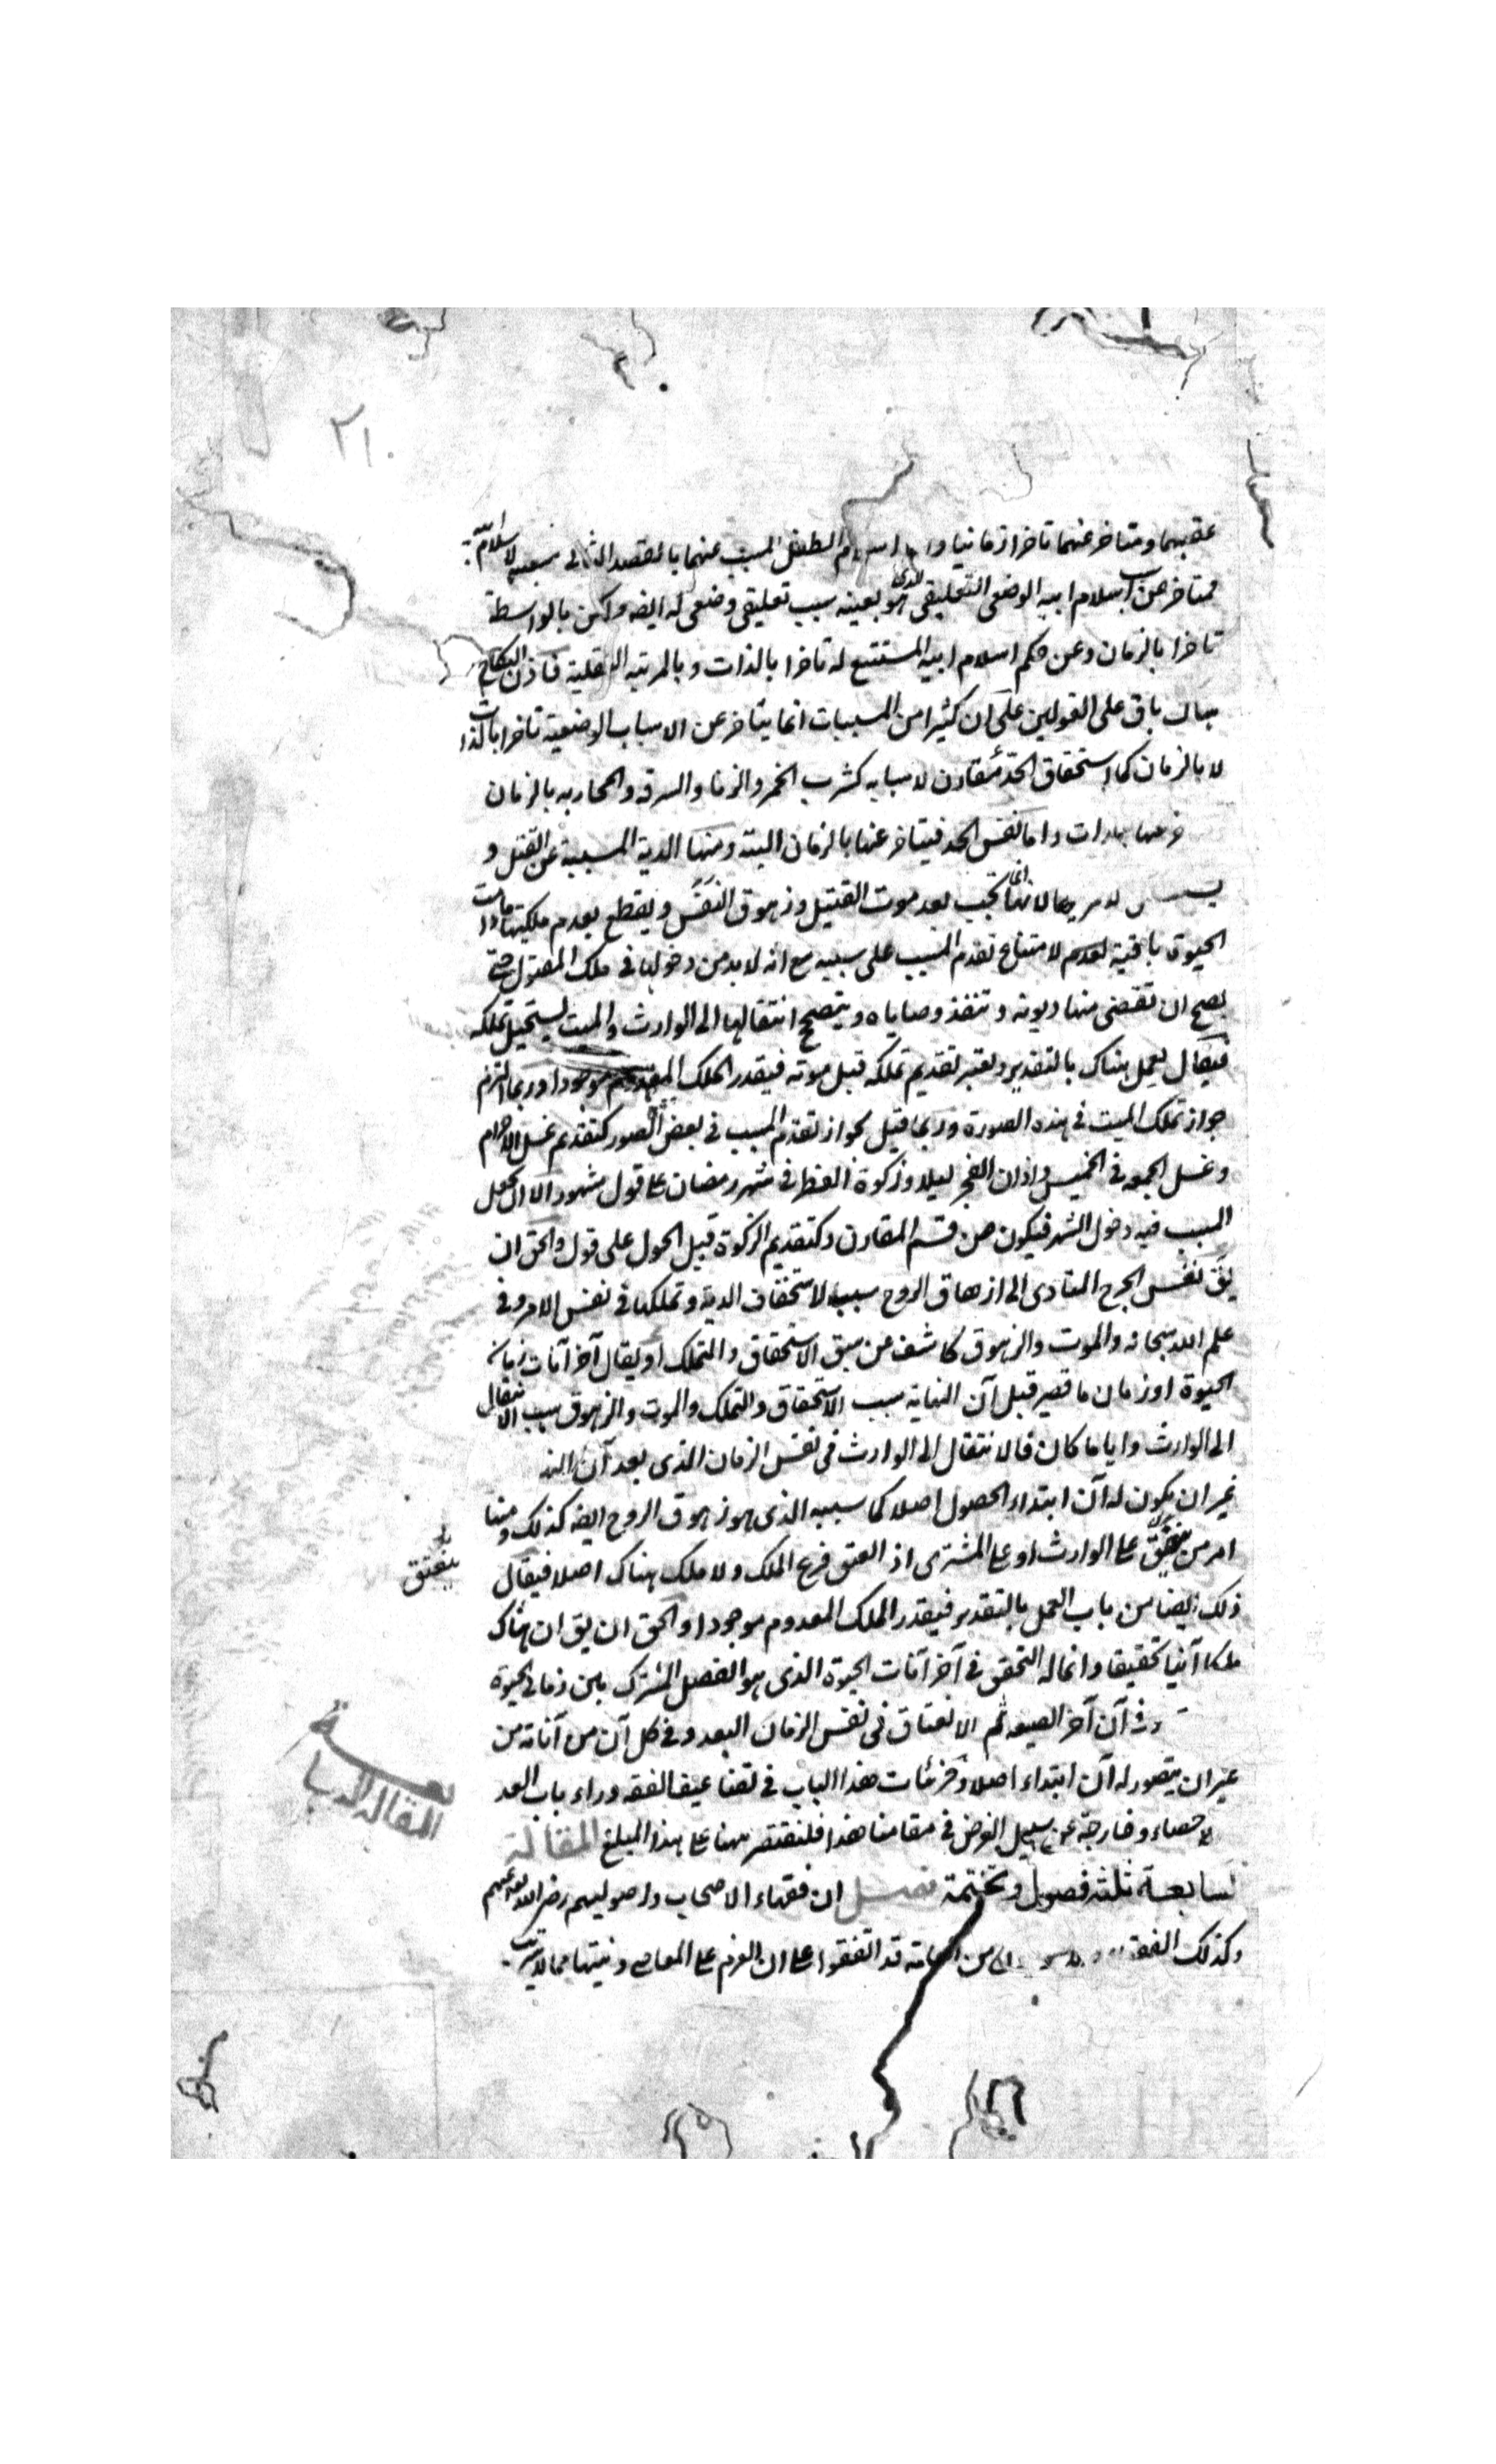 ٢١٠
عقيبهما ومتاخر عنهما تاخرا زمانيا واما اسلام الطفل المسبب عنهما بالقصد الثانى سببية لاسلامه
فمتاخر عن اسلام ابيه الوضعى التعليقى الذى هو بعينه سبب تعليقى وضعى له ايضه ولكن بالواسطة
تاخرا بالزمان وعن حكم اسلام ابيه المستتبع له تاخرا بالذات وبالمرتبه العقلية فاذن النكاح
هناك باق على القولين على ان كثيرا من المسببات انما يتاخر عن الاسباب الوضعية تاخرا بالذات
لا بالزمان كما استحقاق الحد مقارن لاسبابه كشرب الخمر والزنا والسرقه والمحاربه بالزمان
عنها بالذات واما نفس الحد فيتاخر عنها بالزمان البتة ومنها الدية المسببة عن القتل و
لانها انما تجب بعد موت القتيل وزهوق النفس ويقطع بعدم ملكيتها ما دامت
الحيوة باقية لعدم لامتناع تقدم المسبب على سببه مع انه لا بد من دخولها فى ملك المقتول حتى
يصح ان تقضى منها ديونه وتنفذ وصاياه ويتصحح انتقالها الى الوارث والميت يستحيل تملكه
فيقال يعمل هناك بالتقدير ويعتبر تقديم تملكه قبل موته فيقدر الملك المعدوم موجودا وربما التزم
جواز تملك الميت فى هذه الصورة وربما قيل بجواز تقدم المسبب فى بعض الصور كتقديم غسل الاحرام
وغسل الجمعه فى الخميس واذان الفجر ليلا وزكوة الفطر فى شهر رمضان على قول مشهور الا ان يجعل
السبب فيه دخول الشهر فيكون من قسم المقارن وكتقديم الزكوة قبل الحول على قول والحق ان
يق نفس الجرح المتادى الى ازهاق الروح سبب لاستحقاق الدية وتملكها فى نفس الامر وفى
علم الله سبحانه والموت والزهوق كاشف عن سبق الاستحقاق والتملك او يقال آخر آنات زمان
الحيوة او زمان ما قصير قبل آن النهاية سبب الاستحقاق والتملك والموت والزهوق سبب الانتقال
الى الوارث واياما كان فالانتقال الى الوارث فى نفس الزمان الذى بعد آن
غير ان يكون له آن ابتداء الحصول اصلا كما سببه الذى هو زهوق الروح ايضه كذلك ومنها
امر من ينعتق على الوارث او على المشترى اذ العتق فرع الملك ولا ملك هناك اصلا فيقال
ذلك ايضا من باب العمل بالتقدير فيقدر الملك المعدوم موجودا والحق ان يق ان هناك
ملكا آنيا تحقيقا وانما له التحقق فى آخر آنات الحيوة الذى هو الفصل المشترك بين زمانى الحيوة
وفى آن آخر الصيغه ثم الانعتاق فى نفس الزمان البعد وفى كل آن من آناته من
غير ان يتصور له آن ابتداء اصلا وجزئيات هذا الباب فى تضاعيف الفقه وراء باب العد
والاحصاء وخارجة عن سبيل الغرض فى مقامنا هذا فلنقتصر ههنا على هذا المبلغ المقالة
السابعة ثلثه فصول وتختمة فصل ان فقهاء الاصحاب واصوليهم رضى الله تعالى عنهم
وكذلك من العامة قد اتفقوا على ان العزم على المعاصى ونيتها مما لا يترتب
ينعتق
المقالة السابعة